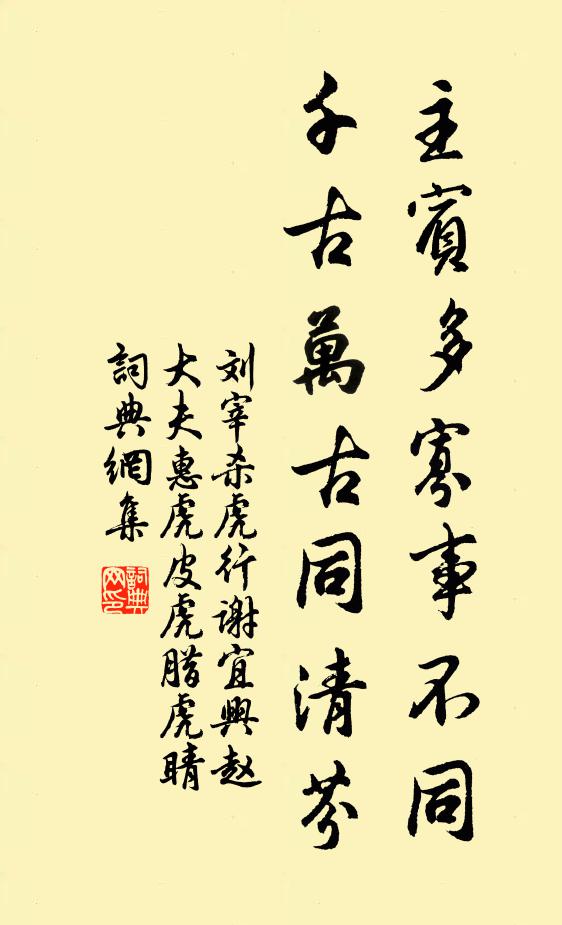 主賓多寡事不同
千古萬古同清芬
刘宰杀虎行谢宜興赵
大夫惠虎皮虎腊虎睛
詞典網集
詞典網印